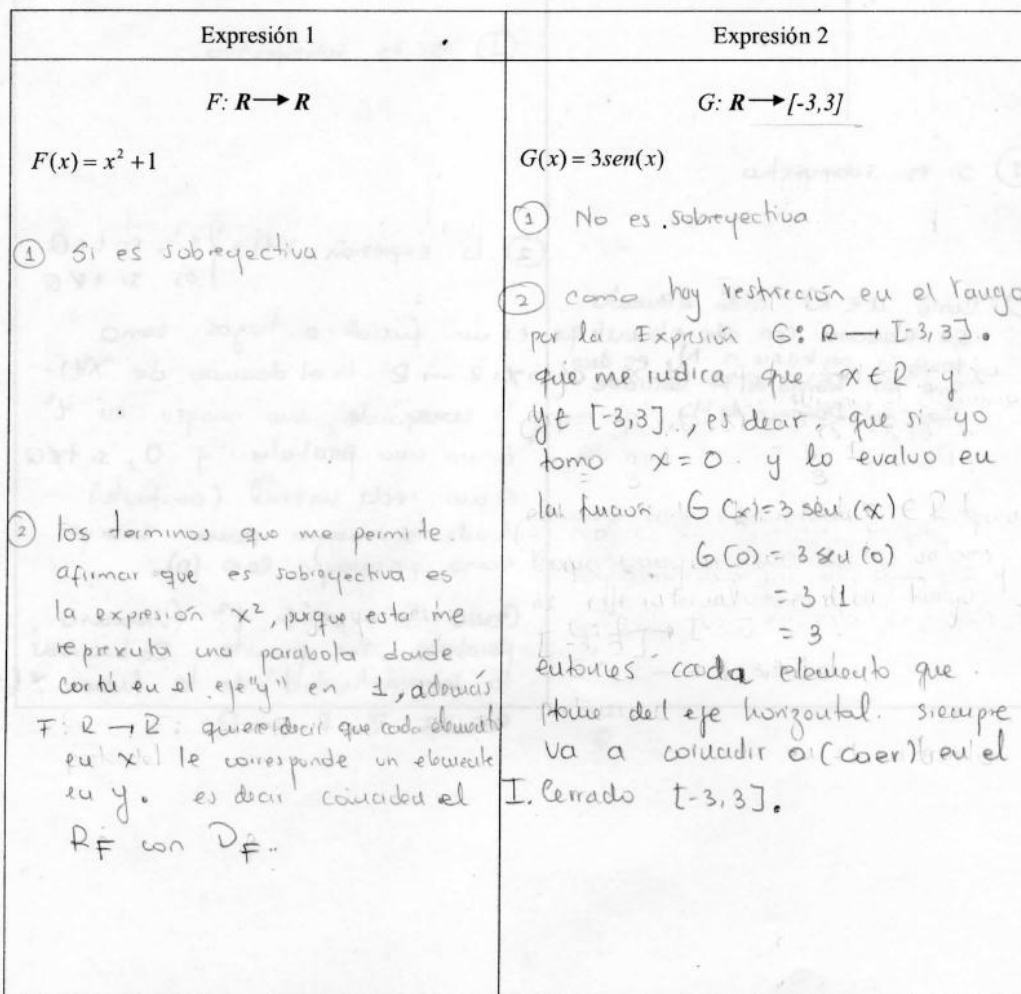 Expresión 1
F: R → R
F(x) = x² + 1
① Si es sobreyectiva
② los terminos que me permite
afirmar que es sobreyectiva es
la expresión x², porque esta me
representa una parabola donde
corta en el eje "y" en 1, además
F: R → R quiere decir que cada elemento
en x le corresponde un elemento
en y. es decir coinciden el
R_F con D_F.
Expresión 2
G: R → [-3,3]
G(x) = 3sen(x)
① No es sobreyectiva
② como hay restricción en el rango
por la Expresión G: R → [-3,3].
que me indica que x ∈ R y
y ∈ [-3,3]., es decir, que si yo
tomo x = 0. y lo evaluo en
la función G(x) = 3 sen(x)
G(0) = 3 sen(0)
= 3.1
= 3.
entonces cada elemento que
tome del eje horizontal. siempre
va a coincidir o (caer) en el
I. Cerrado [-3,3].